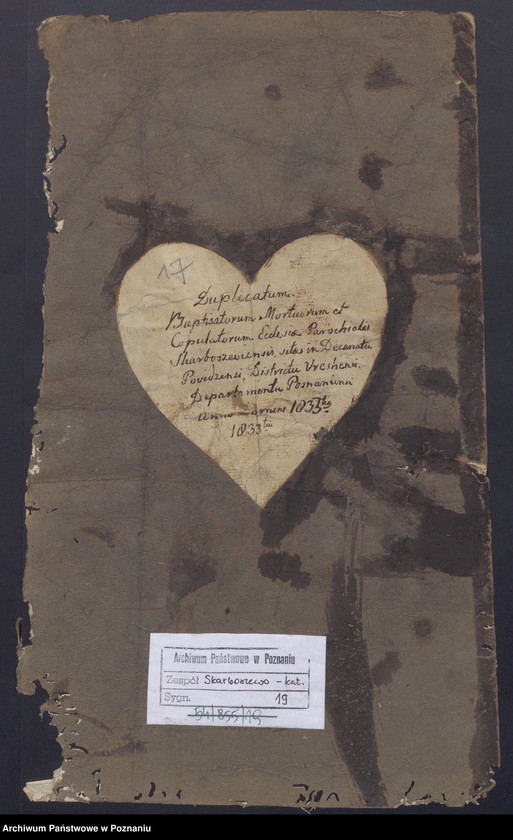 17
Duplicatum
Baptisatorum Mortuorum et
Copulatorum Eclesiæ Parochialis
Skarboszeviensis, sitas in Decanatu
Povidzensi, Districtu Vreshensi.
Departamentu Posnaniensi
Anno 1833tii
1833tii
Archiwum Państwowe w Poznaniu
Zespół Skarboszewo - kat.
Sygn. 19
54/855/19
Archiwum Państwowe w Poznaniu